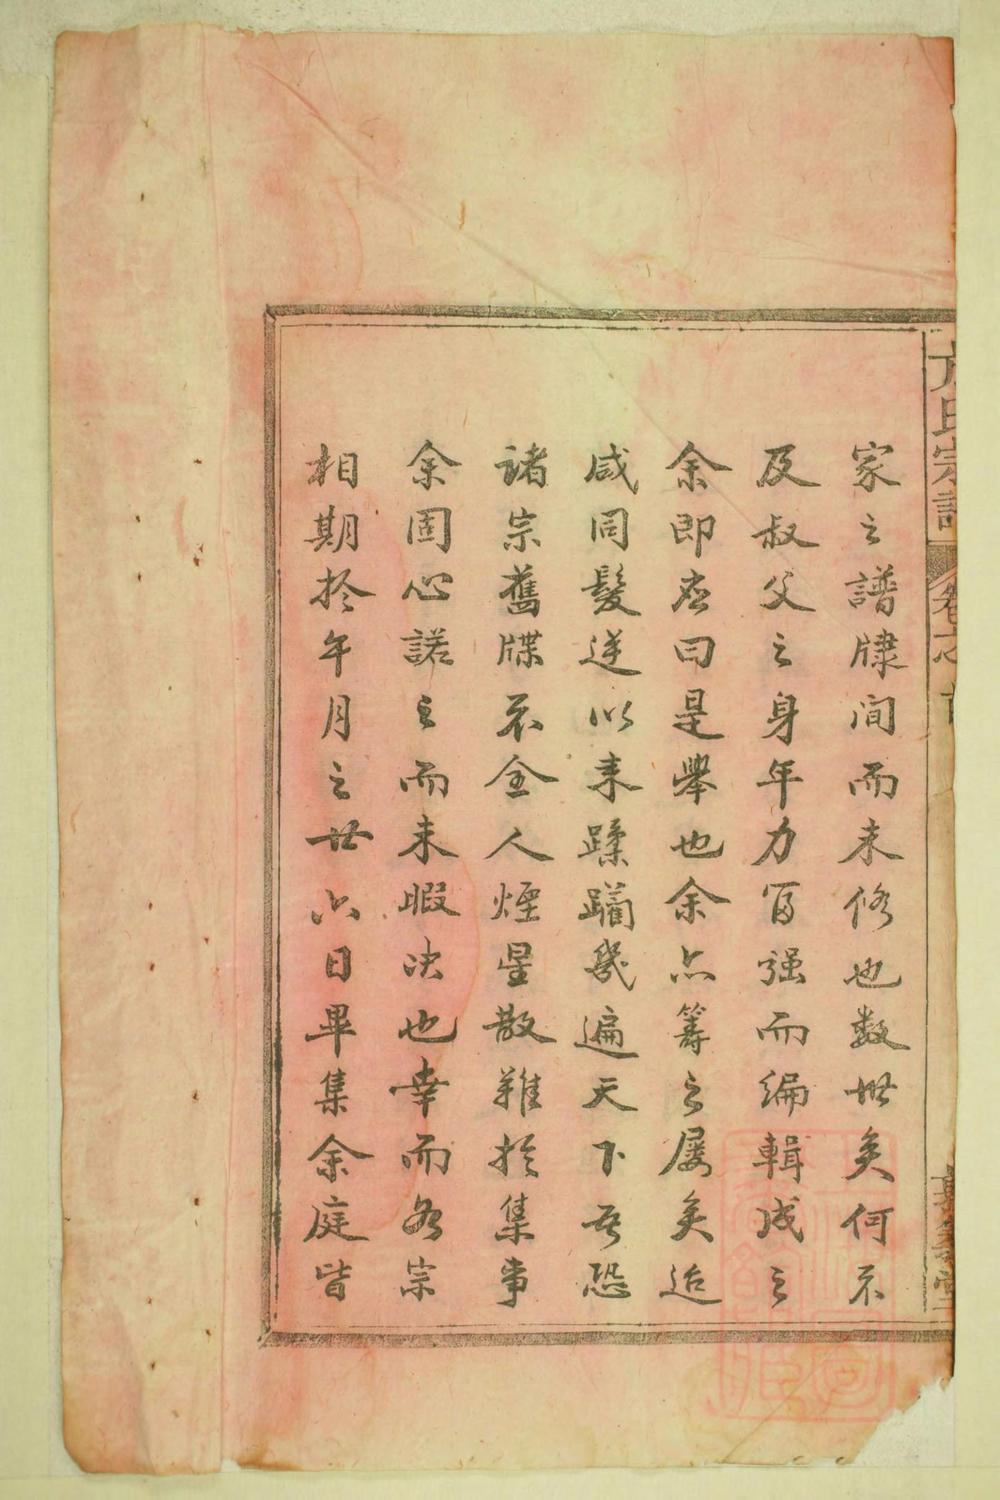 家之譜牒間而未修也数世矣何不
及叔父之身年力富强而編輯成之
余即應曰是舉也余亦籌之屡矣迨
咸同髮逆以来蹂躪幾遍天下吾恐
諸宗舊牒不全人煙星散難於集事
余固心諾之而未暇决也幸而各宗
相期於午月之廿六日畢集余庭皆
方氏宗譜
卷之首